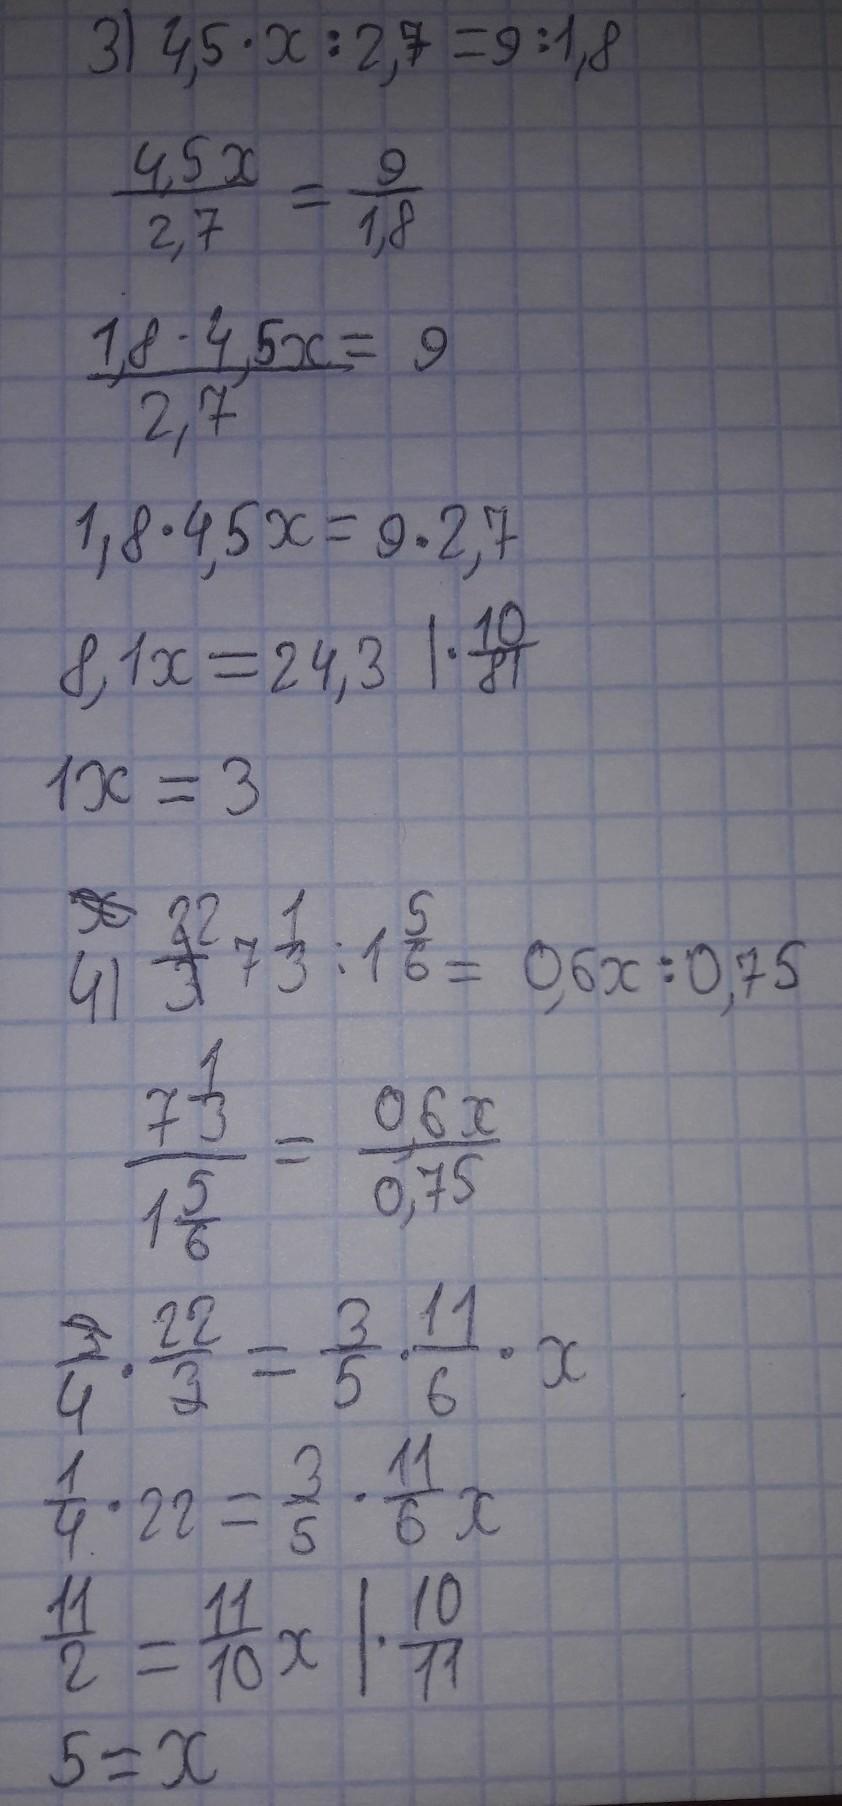 3) 4,5·x:2,7=9:1,8
4,5x/2,7 = 9/1,8
1,8·4,5x/2,7 = 9
1,8·4,5x=9·2,7
8,1x=24,3 |·10/81
1x=3
4) 22/3 7 1/3:1 5/6=0,6x:0,75
7 1/3/1 5/6 = 0,6x/0,75
3/4·22/3=3/5·11/6·x
1/4·22=3/5·11/6x
11/2=11/10x |·10/11
5=x